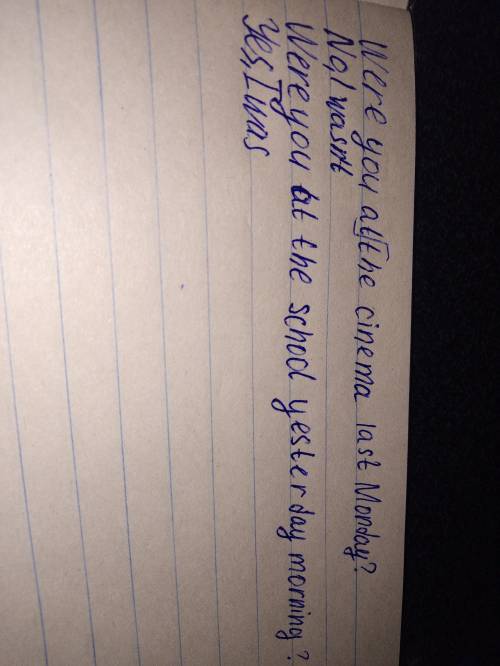 Were you at the cinema last Monday?
No, I wasn't
Were you at the school yesterday morning?
Yes, I was